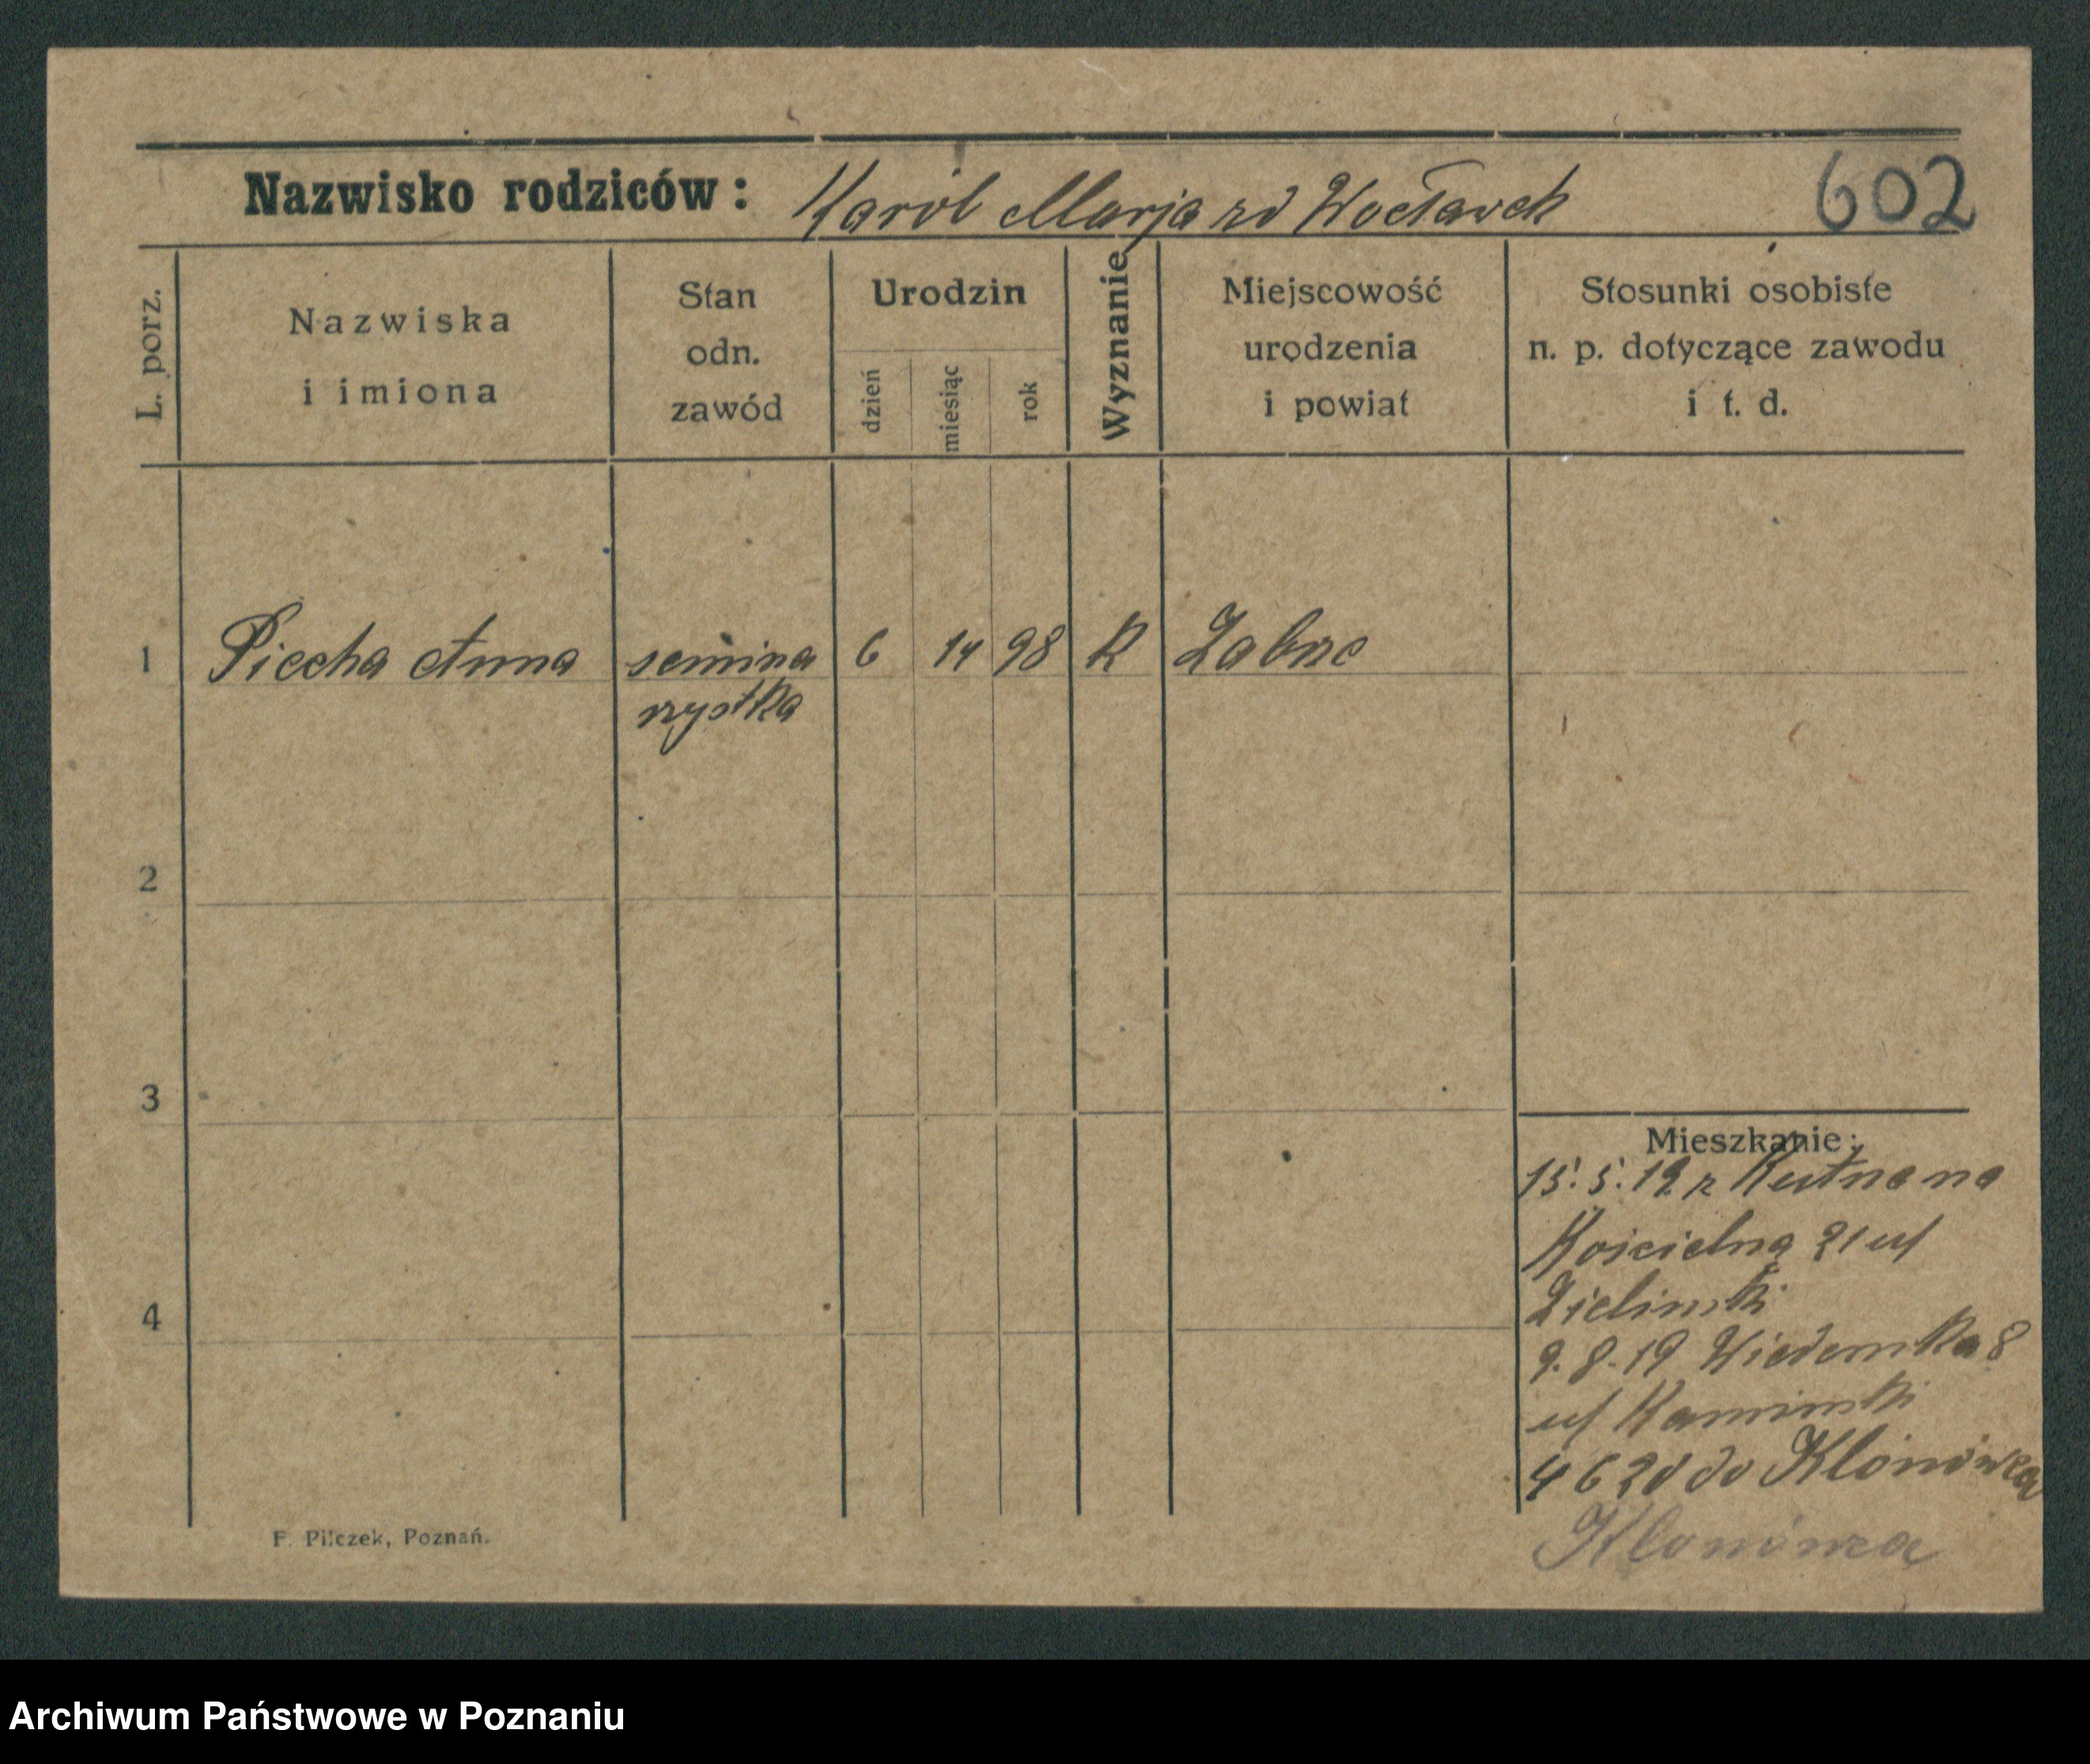 Nazwisko rodziców: Karol Marja zd Wocławek
602
L. porz.
Nazwiska
i imiona
Stan
odn.
zawód
Urodzin
dzień
miesiąc
rok
Wyznanie
Miejscowość
urodzenia
i powiat
Stosunki osobiste
n. p. dotyczące zawodu
i t. d.
1 Piecha Anna semina 6 14 98 R Zabrze
rzystka
2
3
4
Mieszkanie:
15.5.19 z Kutna na
Kościelną 21 u/
Zielinski
9.8.19 Wiedemska 8
u/ Kaminski
4 6 20 do Klonówca
Klonówca
F. Pilczek, Poznań.
Archiwum Państwowe w Poznaniu